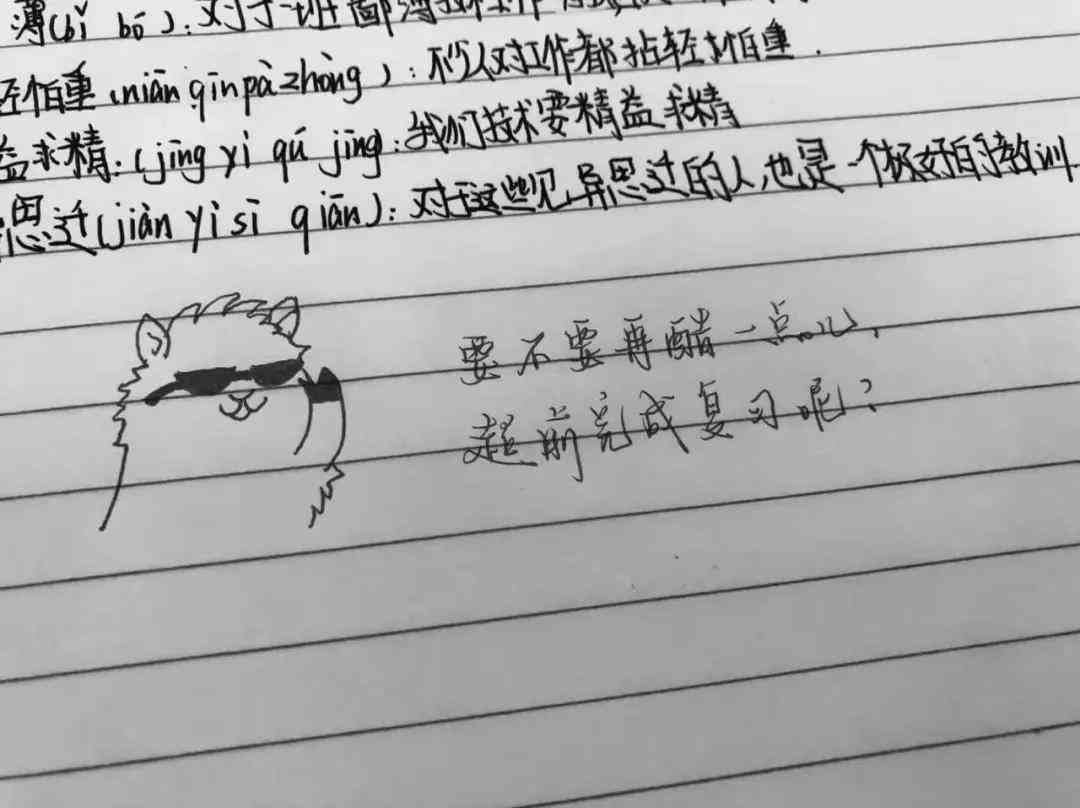 薄(bǐ bó):对于一班鄙薄技术工作
轻怕重(niān qīn pà zhòng):不少人对工作都拈轻怕重.
益求精:(jīng yì qiú jīng):我们技术要精益求精
思迁(jiàn yì sī qiān):对于这些见异思迁的人,也是一个极好的教训
要不要再醋一点儿,
超前完成复习呢?